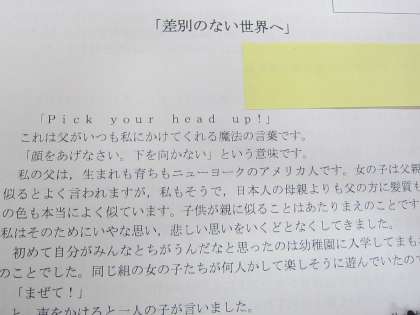 「差別のない世界へ」
「Ｐｉｃｋ　ｙｏｕｒ　ｈｅａｄ　ｕｐ！」
これは父がいつも私にかけてくれる魔法の言葉です。
「顔をあげなさい。下を向かない」という意味です。
私の父は，生まれも育ちもニューヨークのアメリカ人です。女の子は父親
似るとよく言われますが，私もそうで，日本人の母親よりも父の方に髪質も
の色も本当によく似ています。子供が親に似ることはあたりまえのことです
私はそのためにいやな思い，悲しい思いをいくどとなくしてきました。
初めて自分がみんなとちがうんだなと思ったのは幼稚園に入学してまも
のことでした。同じ組の女の子たちが何人かして楽しそうに遊んでいたので
「まぜて！」
と，声をかけると一人の子が言いました。